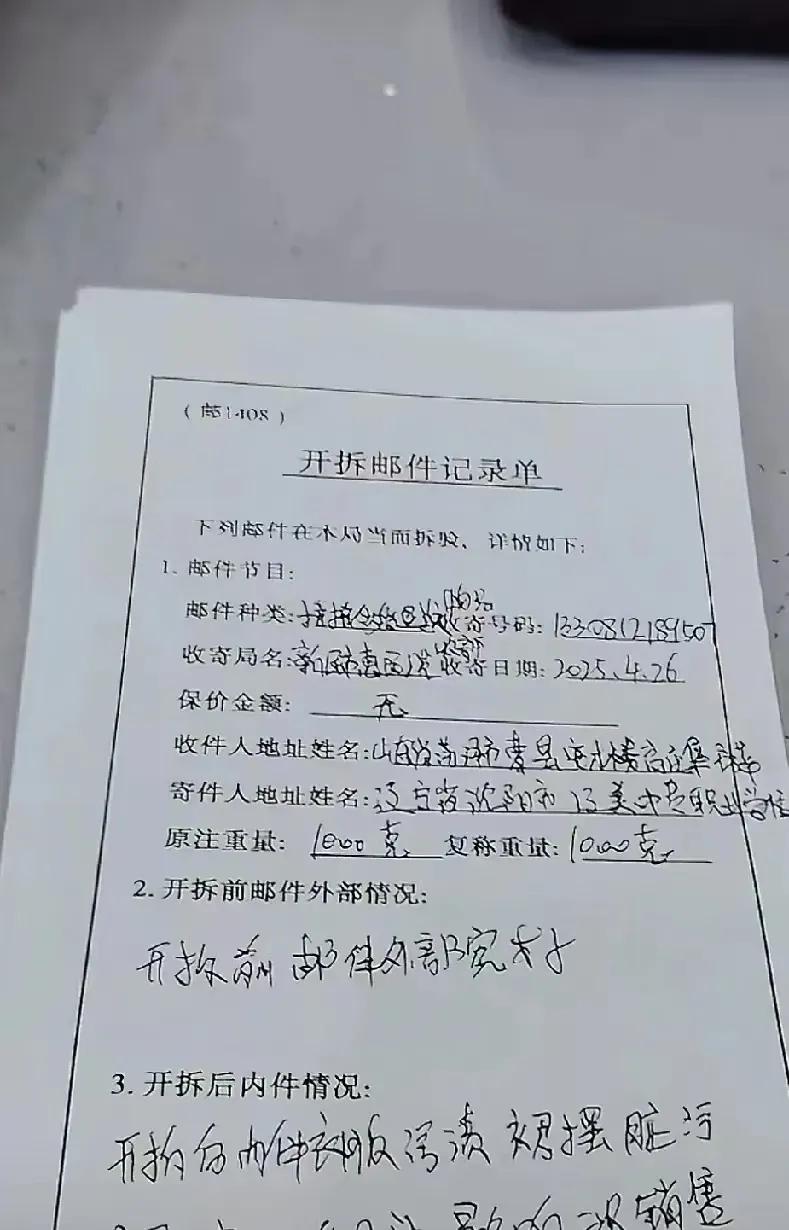 (邮1408)
开拆邮件记录单
下列邮件在本局当面拆验、详情如下:
1. 邮件节目:
邮件种类: 收寄号码: 1330812189507
收寄局名: 收寄日期: 2025.4.26
保价金额: 无
收件人地址姓名: 山东省菏泽市曹县
寄件人地址姓名: 辽宁省沈阳市 中专职业学校
原注重量: 1000克 复称重量: 1000克
2. 开拆前邮件外部情况:
开拆前邮件外部完好
3. 开拆后内件情况:
开拆后内件衣服污渍 裙摆脏污
影响 销售